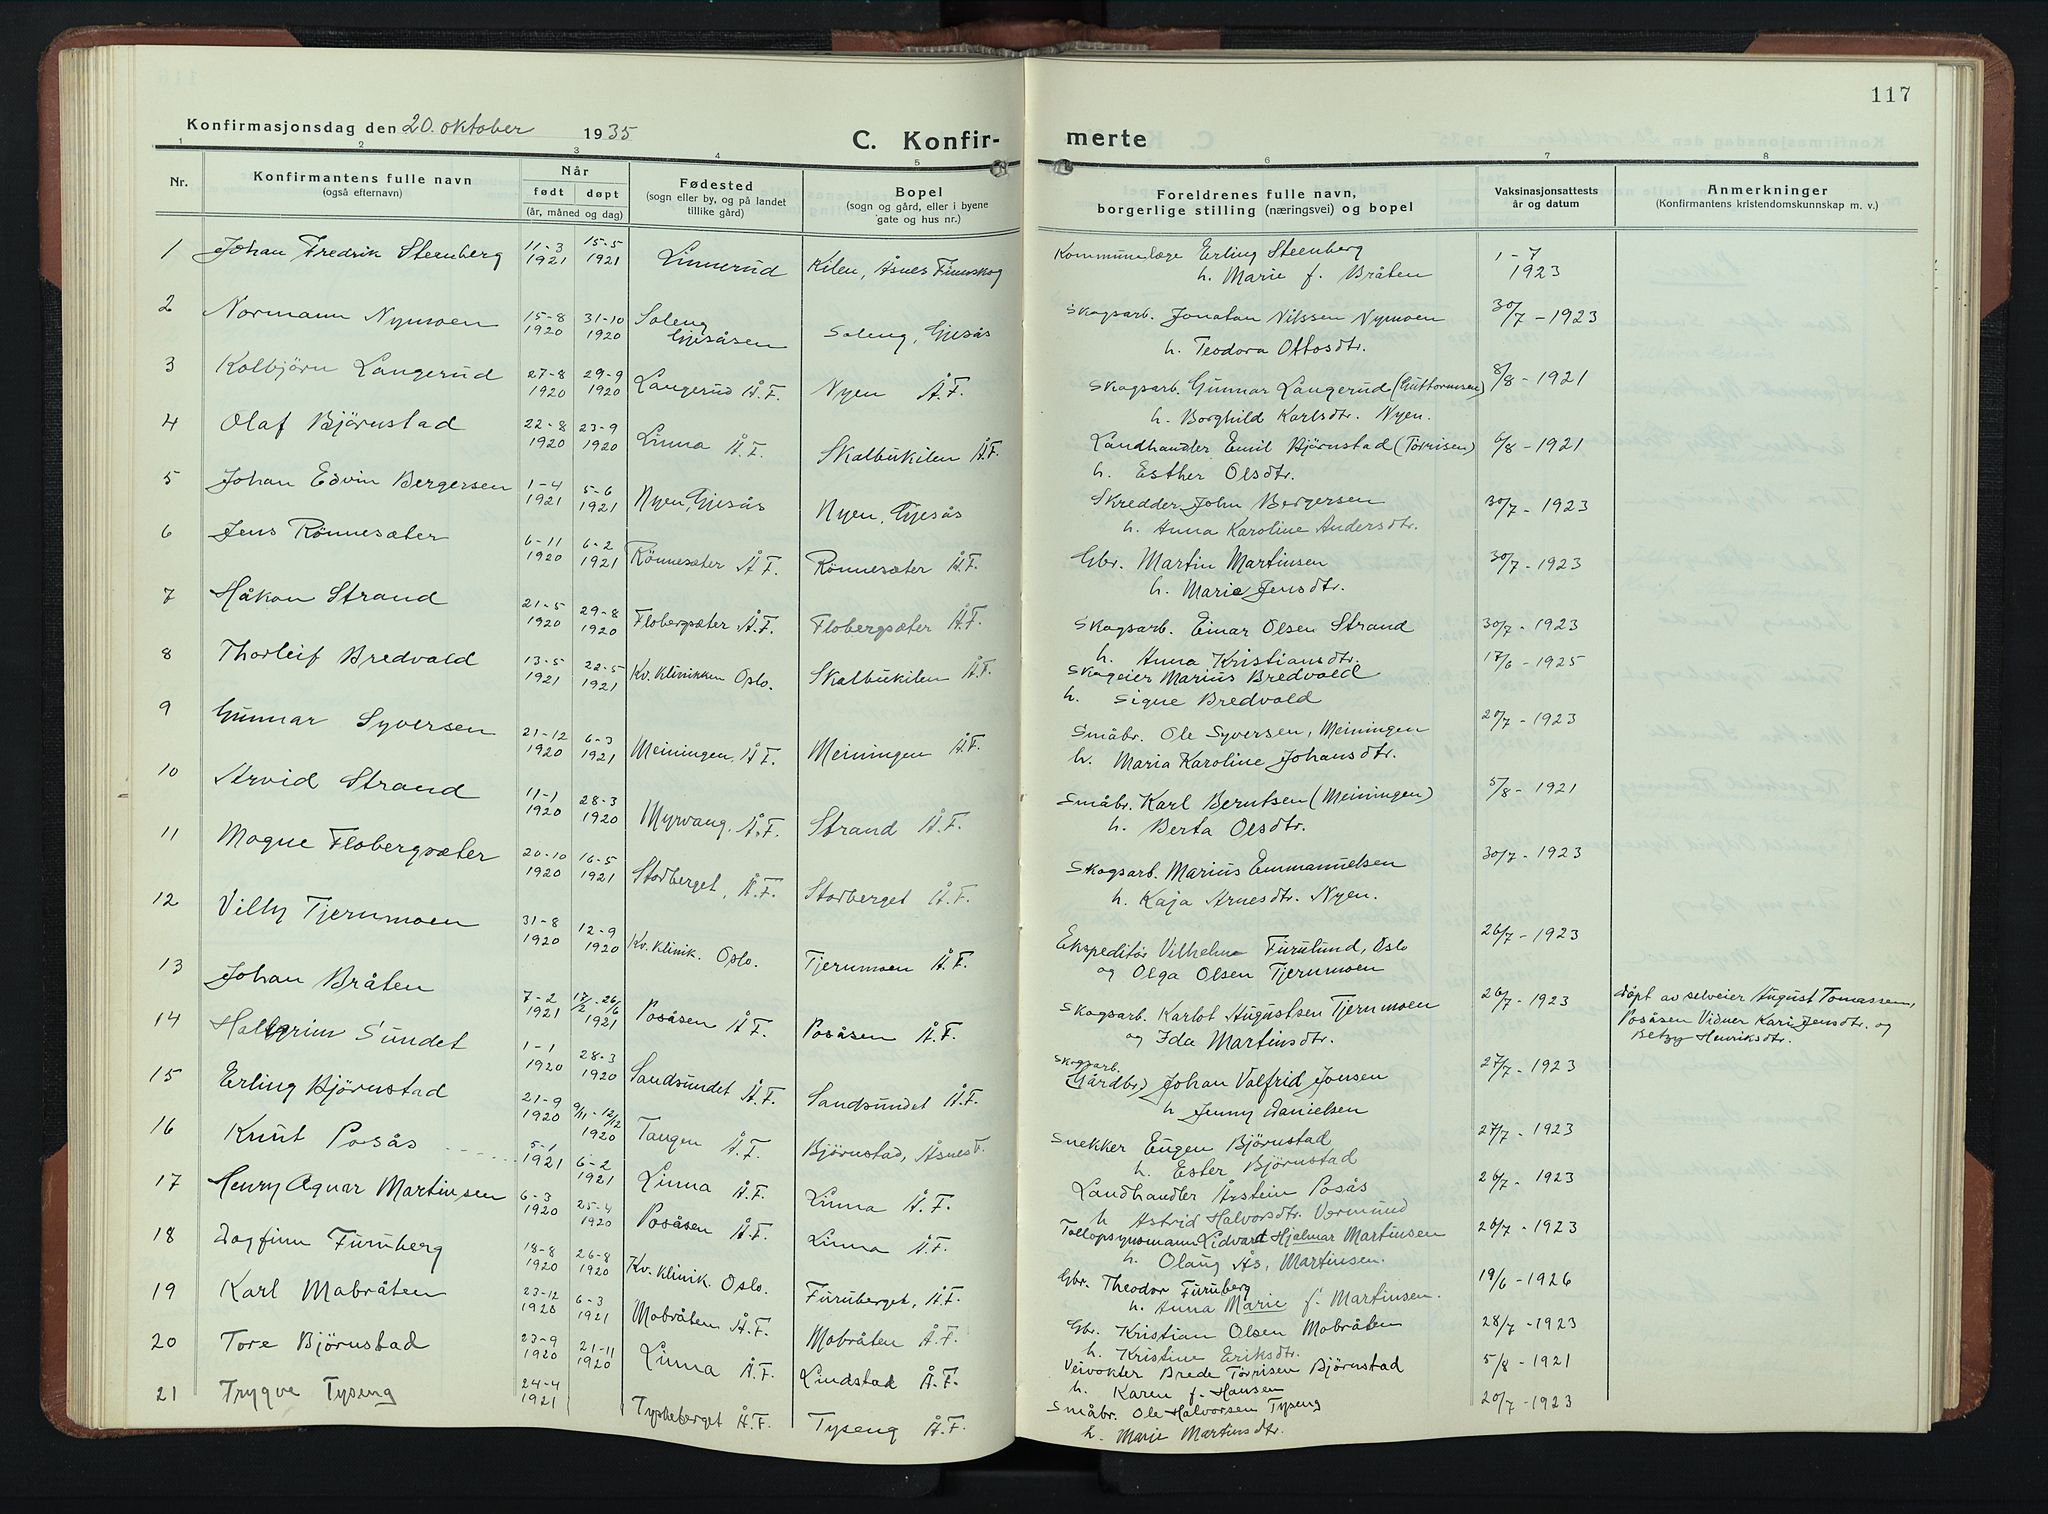 117
Konfirmasjonsdag den 20. oktober 1935
C. Konfir-
merte
1 2 3 4 5 6 7 8
Nr.
Konfirmantens fulle navn
(også efternavn)
Når
født døpt
(år, måned og dag)
Fødested
(sogn eller by, og på landet
tillike gård)
Bopel
(sogn og gård, eller i byene
gate og hus nr.)
Foreldrenes fulle navn,
borgerlige stilling (næringsvei) og bopel
Vaksinasjonsattests
år og datum
Anmerkninger
(Konfirmantens kristendomskunnskap m. v.)
1 Johan Fredrik Steenberg 11-3 1921 15-5 1921 Linnerud Kilen, Åsnes Finnskog Kommunelæge Erling Steenberg 1-7 1923
h. Marie f. Bråten
2 Normann Nymoen 15-8 1920 31-10 1920 Soleng Gjesåsen Soleng, Gjesås Skogsarb. Jonatan Nilssen Nymoen 30/7 - 1923
h. Teodora Ottosdtr.
3 Kolbjörn Langerud 27-8 1920 29-9 1920 Langerud Å.F. Nyen Å.F. Skogsarb. Gunnar Langerud (Guttormsen) 8/8 - 1921
h. Borghild Karlsdtr. Nyen.
4 Olaf Björnstad 22-8 1920 23-9 1920 Linna Å.F. Skalbukilen Å.F. Landhandler Emil Björnstad (Torrisen) 6/8 - 1921
h. Esther Olsdtr.
5 Johan Edvin Bergersen 1-4 1921 5-6 1921 Nyen, Gjesås Nyen, Gjesås Skredder John Bergersen 30/7 - 1923
h. Anna Karoline Andersdtr.
6 Jens Rönnesæter 6-11 1920 6-2 1921 Rönnesæter Å.F. Rönnesæter Å.F. Gbr. Martin Martinsen 30/7 - 1923
h. Marie Jensdtr.
7 Håkon Strand 21-5 1920 29-8 1920 Flobergsæter Å.F. Flobergsæter Å.F. Skogsarb. Einar Olsen Strand 30/7 - 1923
h. Anna Kristiansdtr.
8 Thorleif Bredvold 13-5 1921 22-5 1921 Kv. Klinikken Oslo. Skalbukilen Å.F. Skogeier Marius Bredvold 17/6 - 1925
h. Signe Bredvold
9 Gunnar Syversen 21-12 1920 6-3 1921 Meiningen, Å.F. Meiningen Å.F. Småbr. Ole Syversen, Meiningen 20/7 - 1923
h. Maria Karoline Johansdtr.
10 Arvid Strand 11-1 1920 28-3 1920 Myrvang, Å.F. Strand Å.F. Småbr. Karl Berntsen (Meiningen) 5/8 - 1921
h. Berta Olsdtr.
11 Magne Flobergsæter 20-10 1920 16-5 1921 Storberget, Å.F. Storberget Å.F. Skogsarb. Marius Emmanuelsen 30/7 - 1923
h. Kaja Arnesdtr. Nyen.
12 Villy Tjernmoen 31-8 1920 12-9 1920 Kv. Klinik. Oslo. Tjernmoen Å.F. Ekspeditör Vilhelm Furulund, Oslo 26/7 - 1923
og Olga Olsen Tjernmoen
13 Johan Bråten 7-2 1921 17/2 - 26/6 1921 Posåsen Å.F. Posåsen Å.F. Skogsarb. Karlot Augustsen Tjernmoen 26/7 - 1923 döpt av selveier August Tomassen,
og Ida Martinsdtr. Posåsen Vidner Kari Jensdtr. og
Betzy Henriksdtr.
14 Hallgrim Sundet 1-1 1920 28-3 1920 Sandsundet Å.F. Sandsundet Å.F. Skogsarb. (Gårdbr) Johan Valfrid Jonsen 27/7 - 1923
h Jenny Danielsen
15 Erling Björnstad 21-9 1920 9/11 - 12/12 1920 Tangen Å.F. Björnstad, Åsnes F. Snekker Eugen Björnstad 27/7 - 1923
h. Ester Björnstad
16 Knut Posås 5-1 1921 6-2 1921 Linna Å.F. Linna Å.F. Landhandler Årstein Posås 26/7 - 1923
h Astrid Halvorsdtr. Vermund
17 Henry Agnar Martinsen 6-3 1920 25-4 1920 Posåsen Å.F. Linna Å.F. Tollopsynsmann Lidvart Hjalmar Martinsen 26/7 - 1923
h. Olaug Ås, Martinsen.
18 Dagfinn Furuberg 18-8 1920 26-8 1920 Kv. Klinik. Oslo. Furuberget, Å.F. Gbr. Theodor Furuberg 19/6 - 1926
h. Anna Marie f. Martinsen.
19 Karl Mobråten 23-12 1920 6-3 1921 Mobråten Å.F. Mobråten Å.F. Gbr. Kristian Olsen Mobråten 28/7 - 1923
h. Kristine Eriksdtr.
20 Tore Björnstad 23-9 1920 21-11 1920 Linna Å.F. Lindstad Å.F. Veivokter Brede Torrisen Björnstad 5/8 - 1921
h. Karen f. Hansen
21 Trygve Tyseng 24-4 1921 Tyskeberget Å.F. Tyseng Å.F. Småbr. Ole Halvorsen Tyseng 20/7 - 1923
h. Marie Martinsdtr.